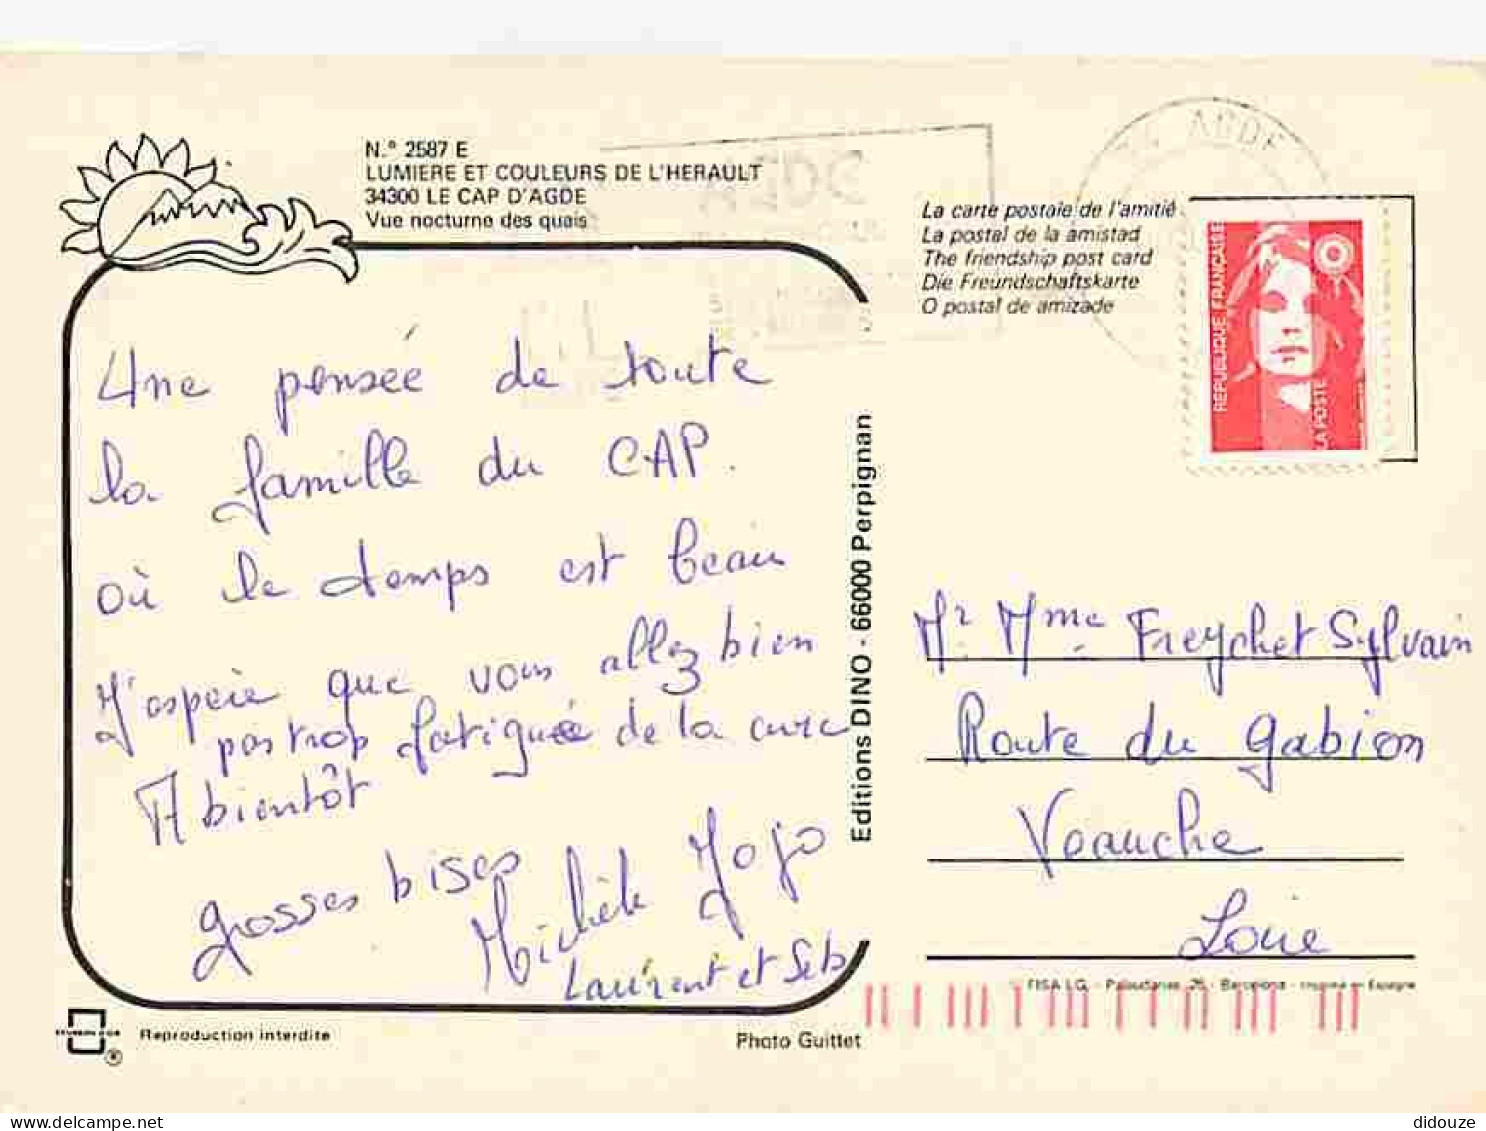 N.º 2587 E
LUMIERE ET COULEURS DE L'HERAULT
34300 LE CAP D'AGDE
Vue nocturne des quais
AGDE
La carte postale de l'amitié
La postal de la amistad
The friendship post card
Die Freundschaftskarte
O postal de amizade
REPUBLIQUE FRANÇAISE
LA POSTE
Une pensée de toute
la famille du CAP.
où le temps est beau
J'espère que vous allez bien
pas trop fatiguée de la cure
A bientôt
grosses bises
Michèle Jojo
Laurent et Seb
Editions DINO - 66000 Perpignan
Mr Mme Freychet Sylvain
Route du gabion
Veauche
Loire
FISA I.G. - Palaudarias, 26 - Barcelona - Impreso en España
Reproduction interdite
Photo Guittet
didouze